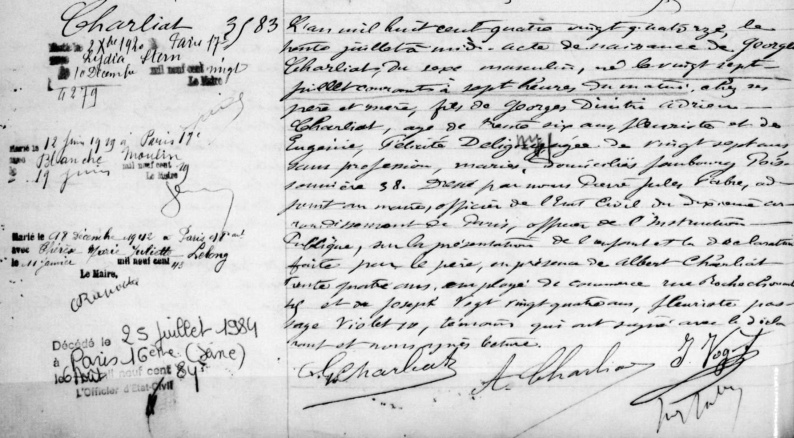 Charliat 3583
Marié le 2 Xbre 1920 à Paris 17e
avec Lydia Stern
le 10 Décembre mil neuf cent vingt
Le Maire
1279
Marié le 12 juin 1929 à Paris 17e
avec Blanche Moulin
le 19 juin mil neuf cent 29
Le Maire
Marié le 18 Décembre 1942 à Paris
avec Marie Juliette Lelong
le 11 janvier mil neuf cent 43
Le Maire,
Décédé le 25 juillet 1984
à Paris 16ème (Seine)
le 6 Août mil neuf cent 84
L'Officier d'Etat-Civil
L'an mil huit cent quatre vingt quatorze, le
trente juillet à midi. Acte de naissance de Georges
Charliat, du sexe masculin, né le vingt sept
juillet courant à sept heures du matin, chez ses
père et mère, fils de Georges Dimitri Adrien
Charliat, âgé de trente six ans, fleuriste et de
Eugénie Félicité âgée de vingt sept ans,
sans profession, mariés, domiciliés faubourg Pois-
sonnière 38. Dressé par nous Pierre Jules Fabre, ad-
joint au maire, officier de l'Etat Civil du dixième ar-
rondissement de Paris, officier de l'Instruction
Publique, sur la présentation de l'enfant et la déclaration
faite par le père, en présence de Albert Charliat
trente quatre ans, employé de commerce rue Rochechouart
et de Joseph Vogt vingt quatre ans, fleuriste pas-
sage Violet 10, témoins qui ont signé avec le décla-
rant et nous après lecture.
G. Charliat A. Charliat J. Vogt